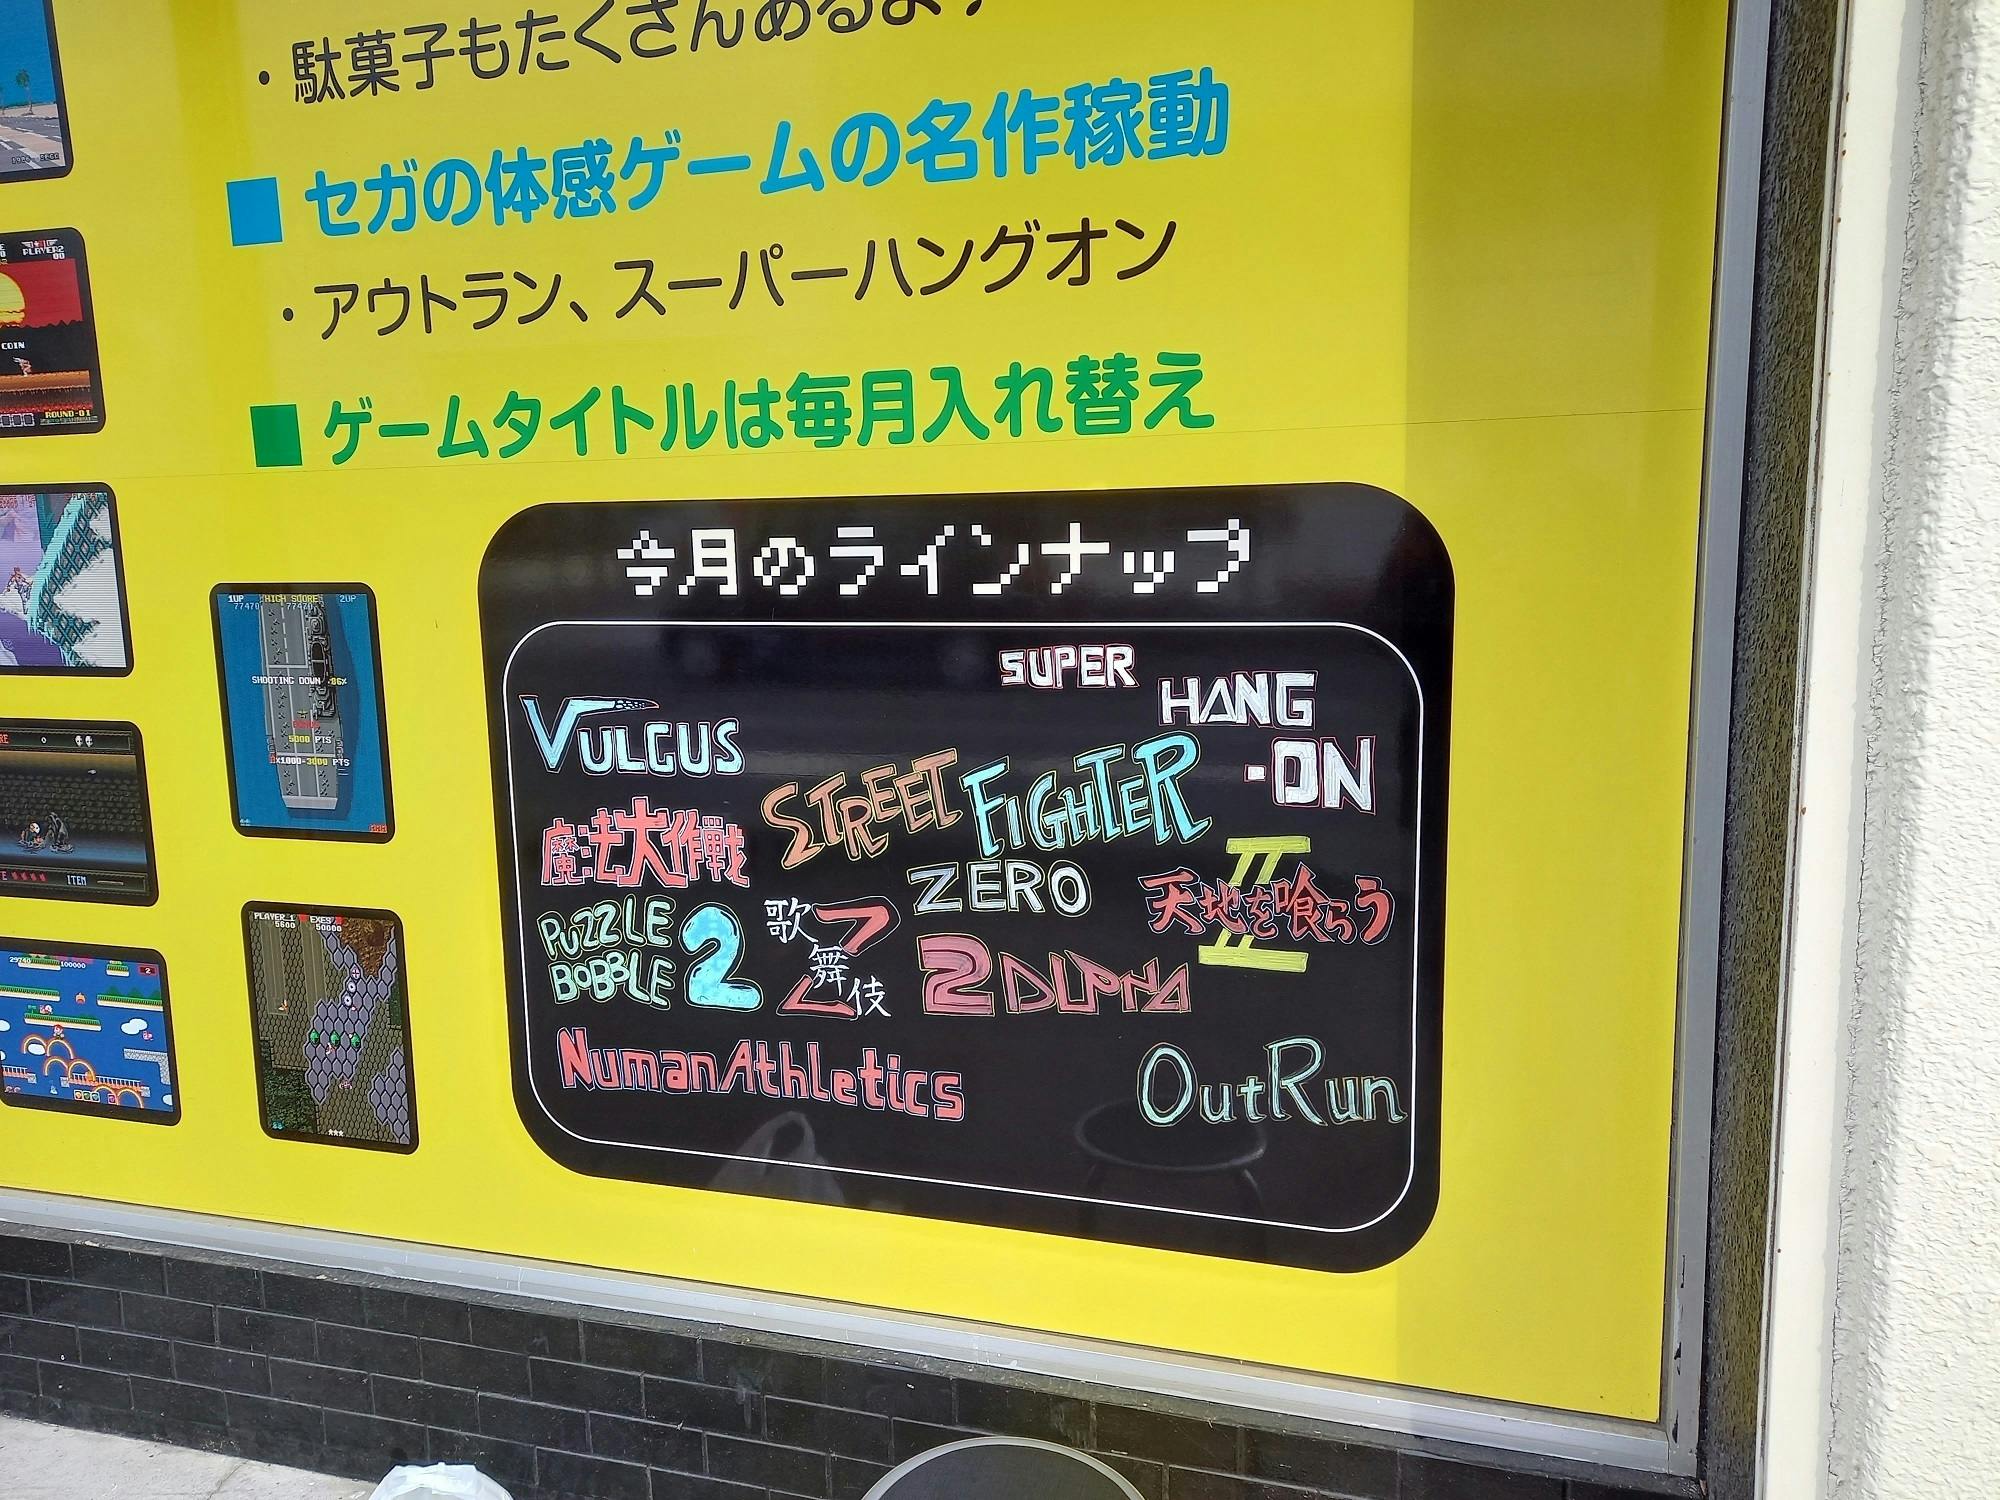 ・駄菓子もたくさんあるよ
■ セガの体感ゲームの名作稼動
・アウトラン、スーパーハングオン
■ ゲームタイトルは毎月入れ替え
今月のラインナップ
SUPER
HANG
-ON
VULGUS
STREET FIGHTER
ZERO
魔法大作戦
II
天地を喰らう
PUZZLE
BOBBLE 2
歌
舞
伎
Z
2 ALPHA
NumanAthletics
OutRun
PLAYER2
00
COIN
ROUND-01
1UP HIGH SCORE 2UP
77470 77470
SHOOTING DOWN 86%
5000 PTS
×1000=3000 PTS
ITEM
PLAYER 1
5600
50000
29740 100000 2